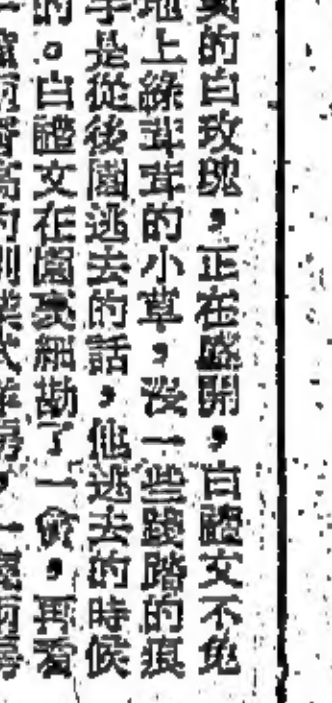 的白玫瑰，正在盛開，白證文不免
地上綠茸茸的小草，沒一些踐踏的痕
是從後園逃去的話，他逃去的時候
的。白證文在園裏細勘了一會，再看